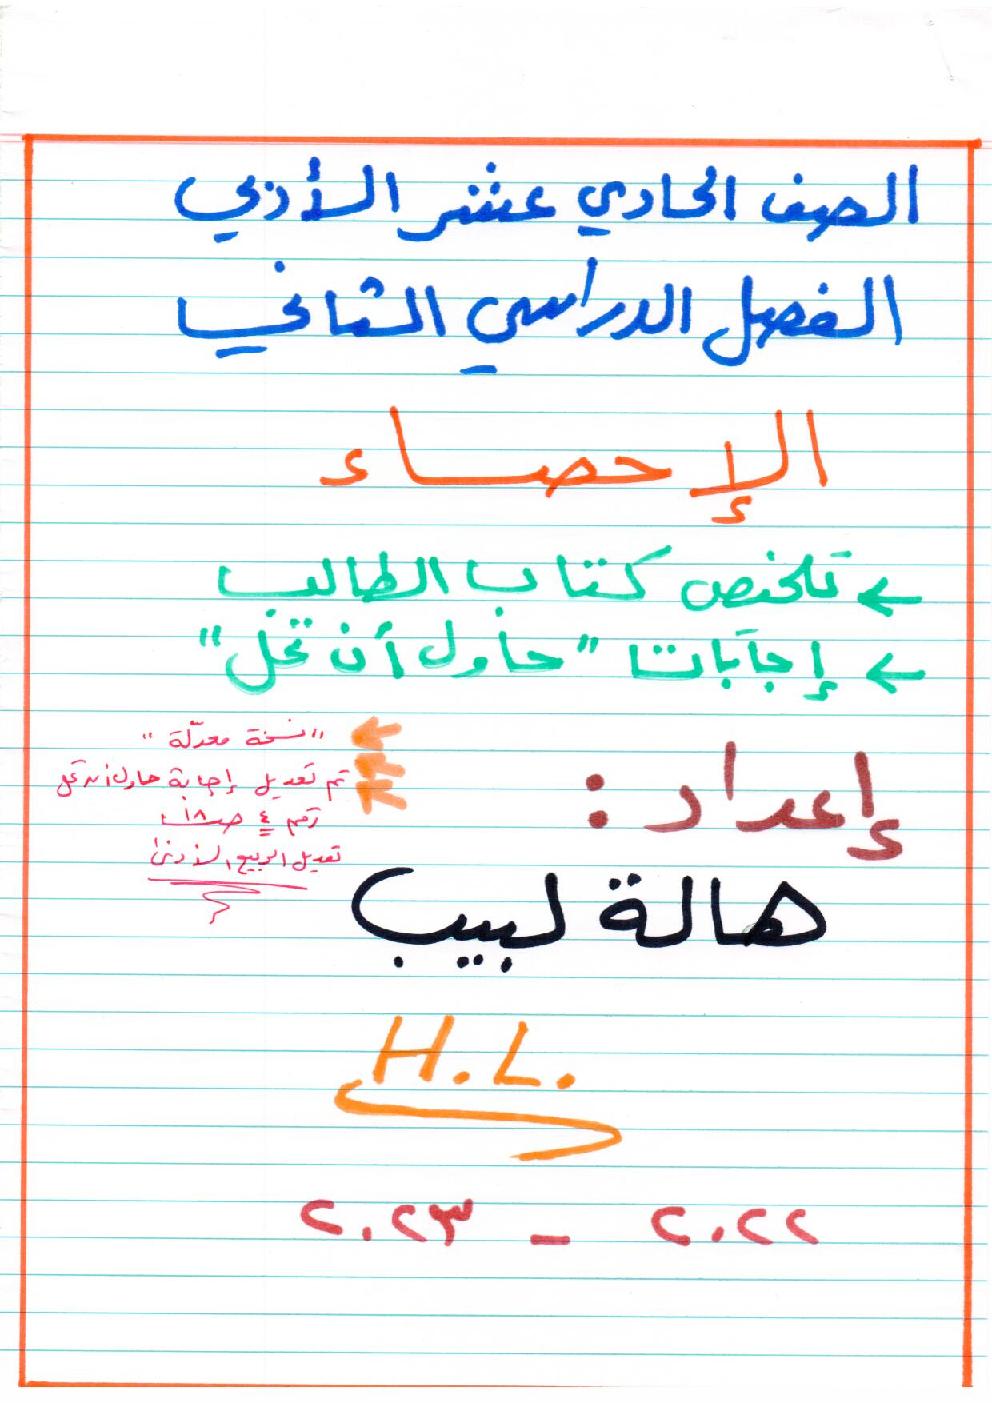 الصف الحادي عشر الأدبي
الفصل الدراسي الثاني
الإحصاء
← تلخيص كتاب الطالب
← إجابات "حاول أن تحل"
"نسخة معدّلة"
تم تعديل إجابة حاول أن تحل
رقم ٤ صـ ١٨
تعديل الربيع الأدنى
إعداد :
هالة لبيب
H.L.
٢٠٢٢ - ٢٠٢٣